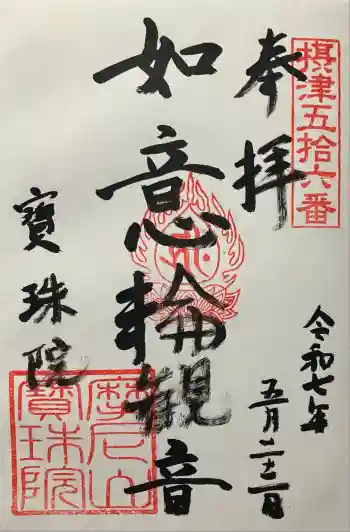 摂津五拾六番
奉拝
令和七年
五月二十三日
如意輪観音
寳珠院
摩尼山
寳珠院